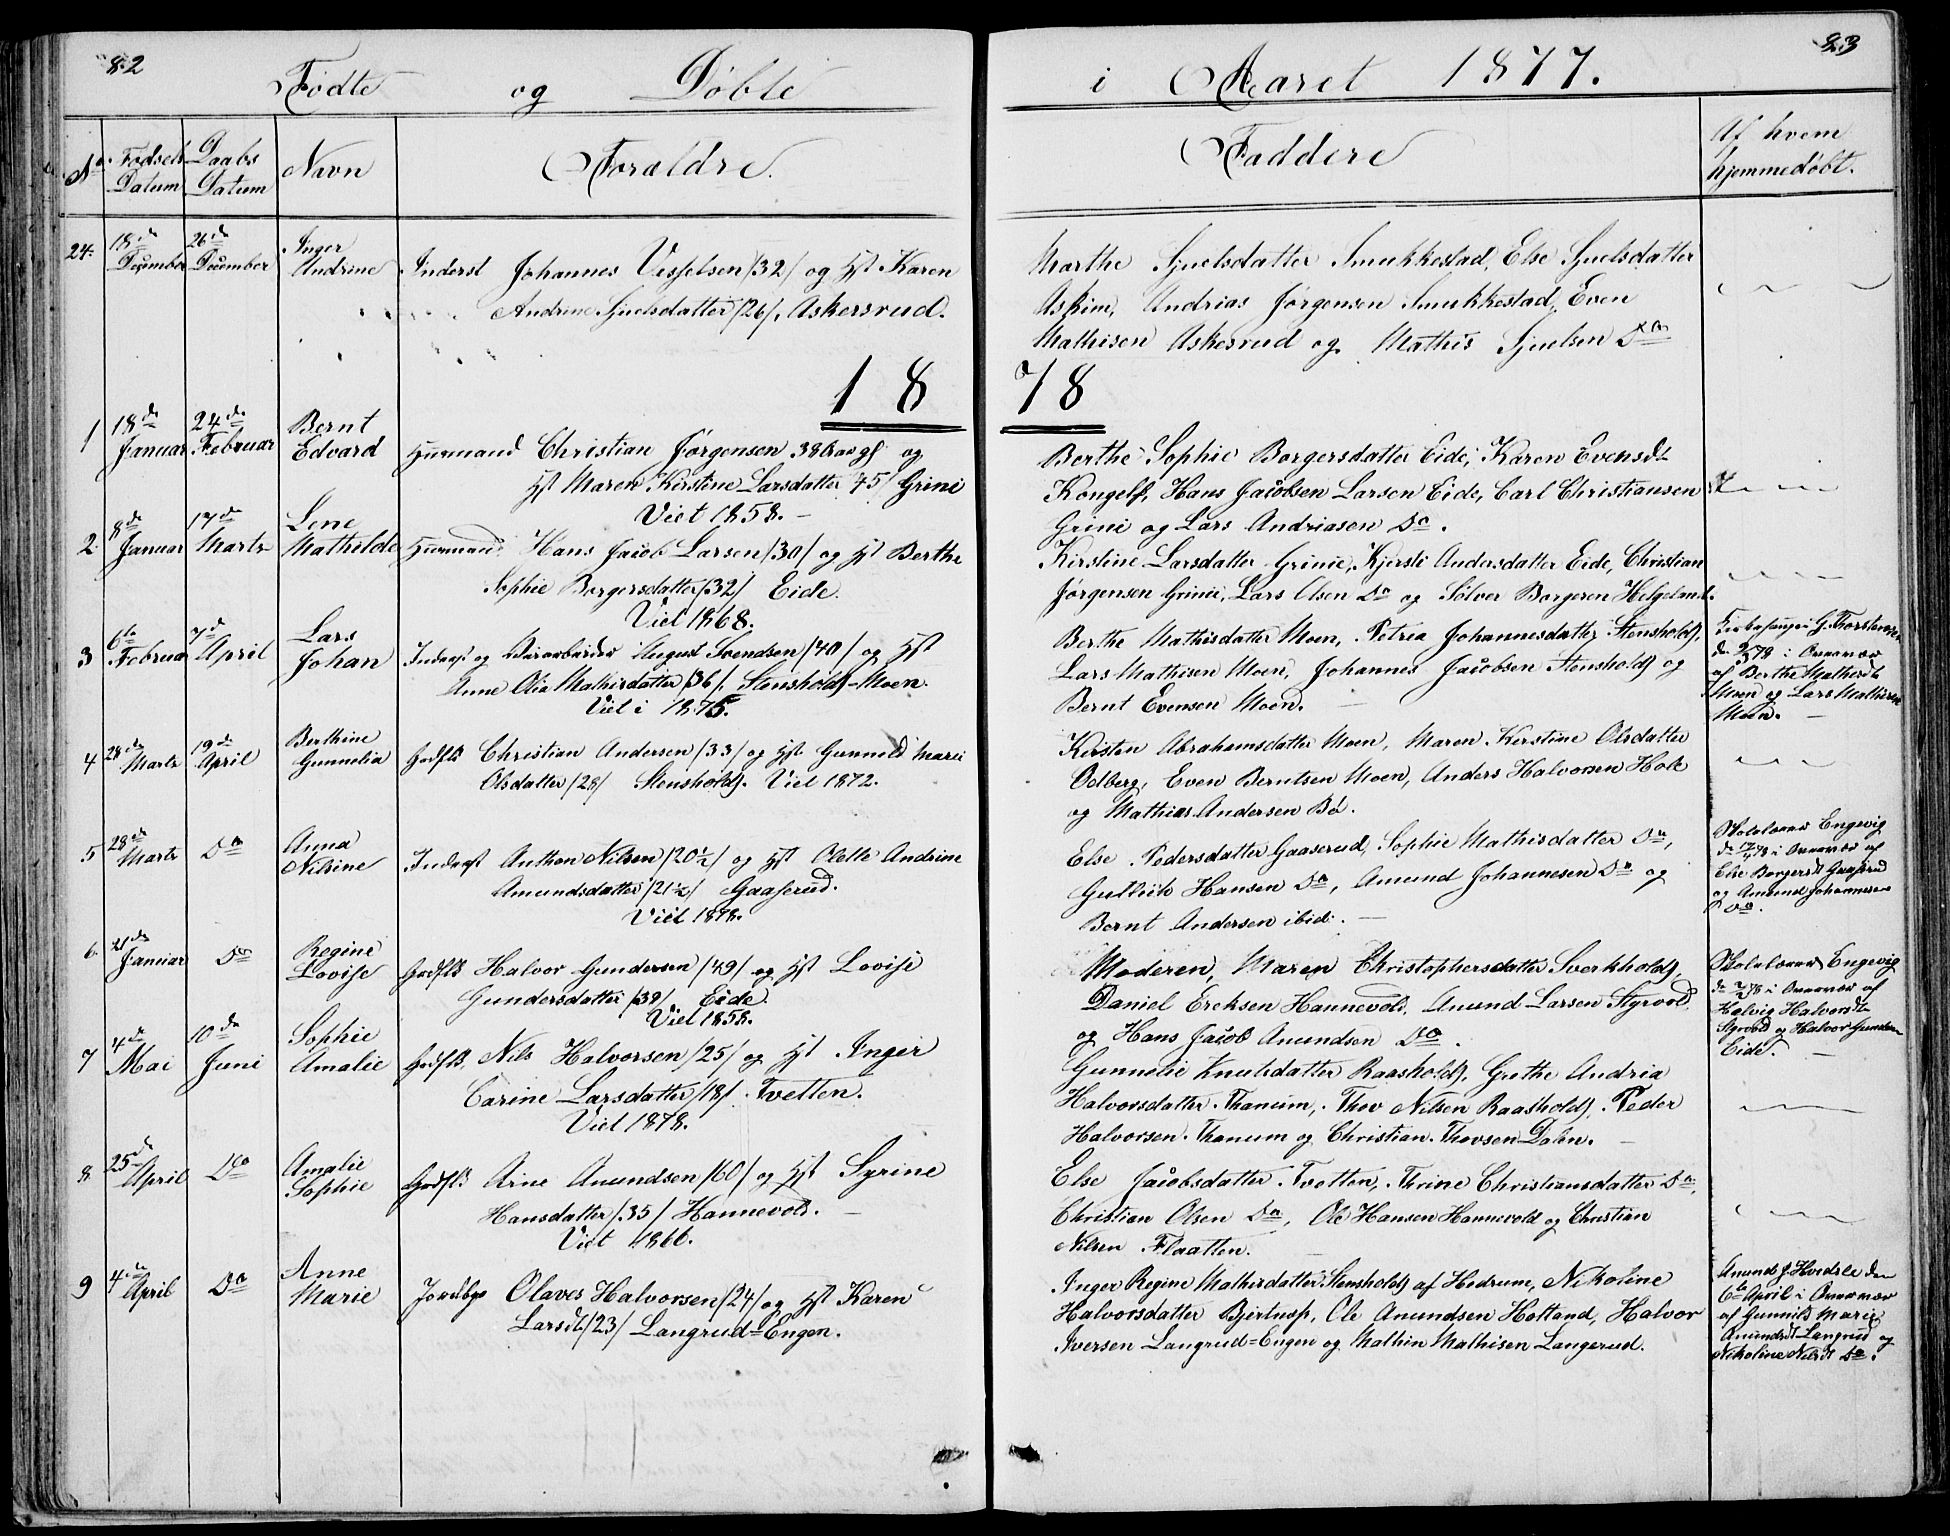 82
83
Fødte og Døbte i Aaret 1877.
No. Fødsels Datum Daabs Datum Navn Forældre. Faddere Af hvem hjemmedøbt.
24. 18de December 26de December Inger Andrine
Inderst Johannes Visselsen /32/ og Hst Karen
Andrine Sjuelsdatter /26/, Askersrud.
Marthe Sjuelsdatter Smukkestad, Else Sjuelsdatter
Askim, Andrias Jørgensen Smukkestad, Even
Mathisen Askesrud og Mathis Sjuelsen Do
1878
1 18de Januar 24de Februar Bernt Edvard
Huusmand Christian Jørgensen 38 og
Hst Maren Kirstine Larsdatter 45/ Grini
Viet 1858. —
Berthe Sophie Borgersdatter Eide, Karen Evensdt
Kongelf, Hans Jacobsen Larsen Eide, Carl Christiansen
Grini og Lars Andriasen Do.
2. 8de Januar 17de Marts Lene Mathilde
Huusmand Hans Jacob Larsen /30/ og Hst Berthe
Sophie Borgersdatter /32/ Eide.
Viet 1868.
Kirstine Larsdatter Grinie, Kjersti Andersdatter Eide, Christian
Jørgensen Grinie, Lars Olsen Do og Sølver Borgeren Helgeland.
3 6te Februar 7de April Lars Johan
Inderst og August Svendsen /40/ og Hst
Anne Olia Mathisdatter /36/, Stensholdt-Moen.
Viet i 1875.
Berthe Mathisdatter Moen, Petrea Johannesdatter Stensholdt,
Lars Mathisen Moen, Johannes Jacobsen Stensholdt og
Bernt Evensen Moen. —
Kirkesanger G. Torstensen
de 9/3 78 i Overvær
af Berthe Mathisdt
Moen og Lars Mathisen
Moen. —
4 28de Marts 19de April Berthine Gunnelia
Gaardbr Christian Andersen /33/ og Hst Gunnild Marie
Olsdatter /28/ Stensholdt. Viet 1872.
Kirsten Abrahamsdatter Moen, Maren Kirstine Olsdatter
Odberg, Even Berntsen Moen, Anders Halvorsen Holt
og Mathias Andersen Bø.
5 28de Marts Do Anna Nilsine
Inderst Anthon Nilsen /20½/ og Hst Olette Andrine
Amundsdatter /21½/ Gaaserud.
Viet 1878.
Else Pedersdatter Gaaserud, Sophie Mathisdatter Do,
Gullick Hansen Do, Amund Johannesen Do og
Bernt Andersen ibid. —
Skolelærer Engevig
de 17/4 78 i Overvær af
Else Borgersdt Gaaserud
og Amund Johannesen
Do.
6. 21de Januar Do Regine Lovise
Gaardbr Halvor Gundersen /49/ og Hst Lovise
Gundersdatter /39/ Eide.
Viet 1858.
Moderen, Maren Christophersdatter Sverkholdt,
Daniel Ercksen Hannevold, Anund Larsen Styrvold
og Hans Jacob Anundsen Do.
Skolelærer Engevig
de 78 i Overvær af
Helvig Halvorsdt
Styrvold og Halvor Gundersen
Eide. —
7 4de Mai 10de Juni Sophie Amalie
Gaardbr. Nils Halvorsen /25/ og Hst Inger
Carine Larsdatter /18/ Tvetten.
Viet 1878.
Gunnelie Knutsdatter Raasholdt, Grethe Andria
Halvorsdatter Thanum, Thov Nilsen Raasholdt, Peder
Halvorsen Thanum og Christian Thovsen Dalen. —
8. 25de April Do Amalie Sophie
Gaardbr Arne Anundsen /60/ og Hst Syrine
Hansdatter /35/ Hannevold. —
Viet 1866.
Else Jacobsdatter Tvetten, Thrine Christiansdatter Do,
Christian Olsen Do, Ole Hansen Hannevold og Christian
Nilsen Flaatten.
9 4de April Do Anne Marie
Jordbr Olaves Halvorsen /24/ og Hst Karen
Larsdt /23/ Langrud=Engen.
Inger Regine Mathisdatter Stensholdt af Hedrum, Nikoline
Halvorsdatter Bjertnes, Ole Anundsen Hotland, Halvor
Iversen Langrud=Engen og Mathin Mathisen Langerud.
Anund J. Hvidsle den
6te April i Overvær
af Gunnild Marie
Anundsdt Langrud og
Nikoline Nilsdt Do.